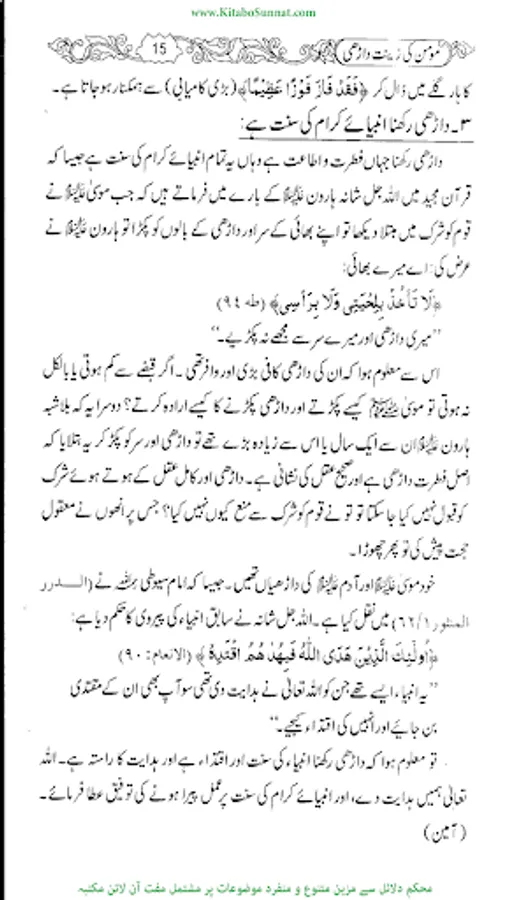 www.KitaboSunnat.com
مومن کی زینت داڑھی
15
کا ہار گلے میں ڈال کر ﴿فَقَدْ فَازَ فَوْزًا عَظِيْمًا﴾ (بڑی کامیابی) سے ہمکنار ہو جاتا ہے۔
۳۔ داڑھی رکھنا انبیائے کرام کی سنت ہے:
داڑھی رکھنا جہاں فطرت و اطاعت ہے وہاں یہ تمام انبیائے کرام کی سنت ہے جیسا کہ
قرآن مجید میں اللہ جل شانہ ہارون علیہ السلام کے بارے میں فرماتے ہیں کہ جب موسیٰ علیہ السلام نے
قوم کو شرک میں مبتلا دیکھا تو اپنے بھائی کے سر اور داڑھی کے بالوں کو پکڑا تو ہارون علیہ السلام نے
عرض کی: اے میرے بھائی:
﴿لَا تَأْخُذْ بِلِحْيَتِي وَلَا بِرَأْسِي﴾ (طه ۹۴)
’’میری داڑھی اور میرے سر سے مجھے نہ پکڑیے۔‘‘
اس سے معلوم ہوا کہ ان کی داڑھی کافی بڑی اور وافر تھی۔ اگر قبضے سے کم ہوتی یا بالکل
نہ ہوتی تو موسیٰ ﷺ کیسے پکڑتے اور داڑھی پکڑنے کا کیسے ارادہ کرتے؟ دوسرا یہ کہ بلاشبہ
ہارون علیہ السلام ان سے ایک سال یا اس سے زیادہ بڑے تھے تو داڑھی اور سر کو پکڑ کر یہ بتلایا کہ
اصل فطرت داڑھی ہے اور صحیح عقل کی نشانی ہے۔ داڑھی اور کامل عقل کے ہوتے ہوئے شرک
کو قبول نہیں کیا جا سکتا تو تو نے قوم کو شرک سے منع کیوں نہیں کیا؟ جس پر انھوں نے معقول
حجت پیش کی تو پھر چھوڑا۔
خود موسیٰ علیہ السلام اور آدم علیہ السلام کی داڑھیاں تھیں۔ جیسا کہ امام سیوطی رحمہ اللہ نے (الدرر
المنثور ۶۲/۱) میں نقل کیا ہے۔ اللہ جل شانہ نے سابق انبیاء کی پیروی کا حکم دیا ہے:
﴿اُولٰئِكَ الَّذِيْنَ هَدَى اللّٰهُ فَبِهُدٰهُمُ اقْتَدِهْ﴾ (الانعام: ۹۰)
’’یہ انبیاء ایسے تھے جن کو اللہ تعالیٰ نے ہدایت دی تھی سو آپ بھی ان کے مقتدی
بن جائیے اور انہیں کی اقتداء کیجیے۔‘‘
تو معلوم ہوا کہ داڑھی رکھنا انبیاء کی سنت اور اقتداء ہے اور ہدایت کا راستہ ہے۔ اللہ
تعالیٰ ہمیں ہدایت دے، اور انبیائے کرام کی سنت پر عمل پیرا ہونے کی توفیق عطا فرمائے۔
(آمین)
محکم دلائل سے مزین متنوع و منفرد موضوعات پر مشتمل مفت آن لائن مکتبہ